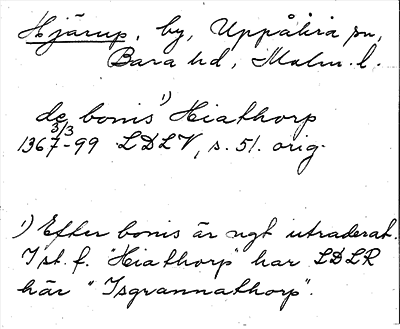 Hjärup, by, Uppåkra sn,
Bara hd, Malm. l.
de bonis¹⁾ Hiathorp
1367 3/3 -99 LDLV, s. 51. orig.
¹⁾ Efter bonis är ngt utraderat.
I st. f. "Hiathorp" har LDLR
här "Isgrannathorp".